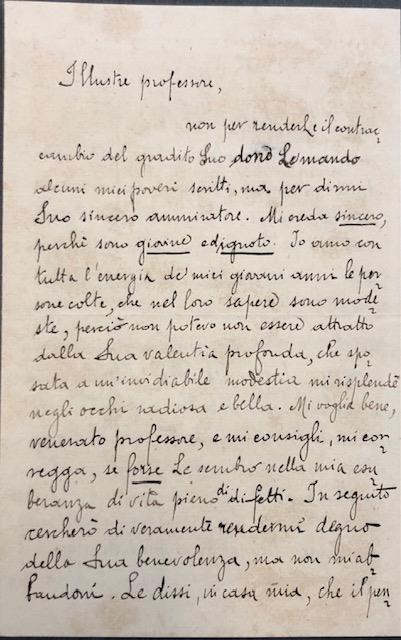 Illustre professore,
non per renderLe il contrac=
cambio del gradito Suo dono Le mando
alcuni miei poveri scritti, ma per dirmi
Suo sincero ammiratore. Mi creda sincero,
perchè sono giovine ed ignoto. Io amo con
tutta l'energia de' miei giovani anni le per=
sone colte, che nel loro sapere sono mode=
ste, perciò non potevo non essere attratto
dalla Sua valentia profonda, che spo=
sata a un'invidiabile modestia mi risplende
negli occhi radiosa e bella. Mi voglia bene,
venerato professore, e mi consigli, mi cor=
regga, se forse Le sembro nella mia esu=
beranza di vita pieno di difetti. In seguito
cercherò di veramente rendermi degno
della Sua benevolenza, ma non mi ab=
bandoni. Le dissi, in casa mia, che il pen=